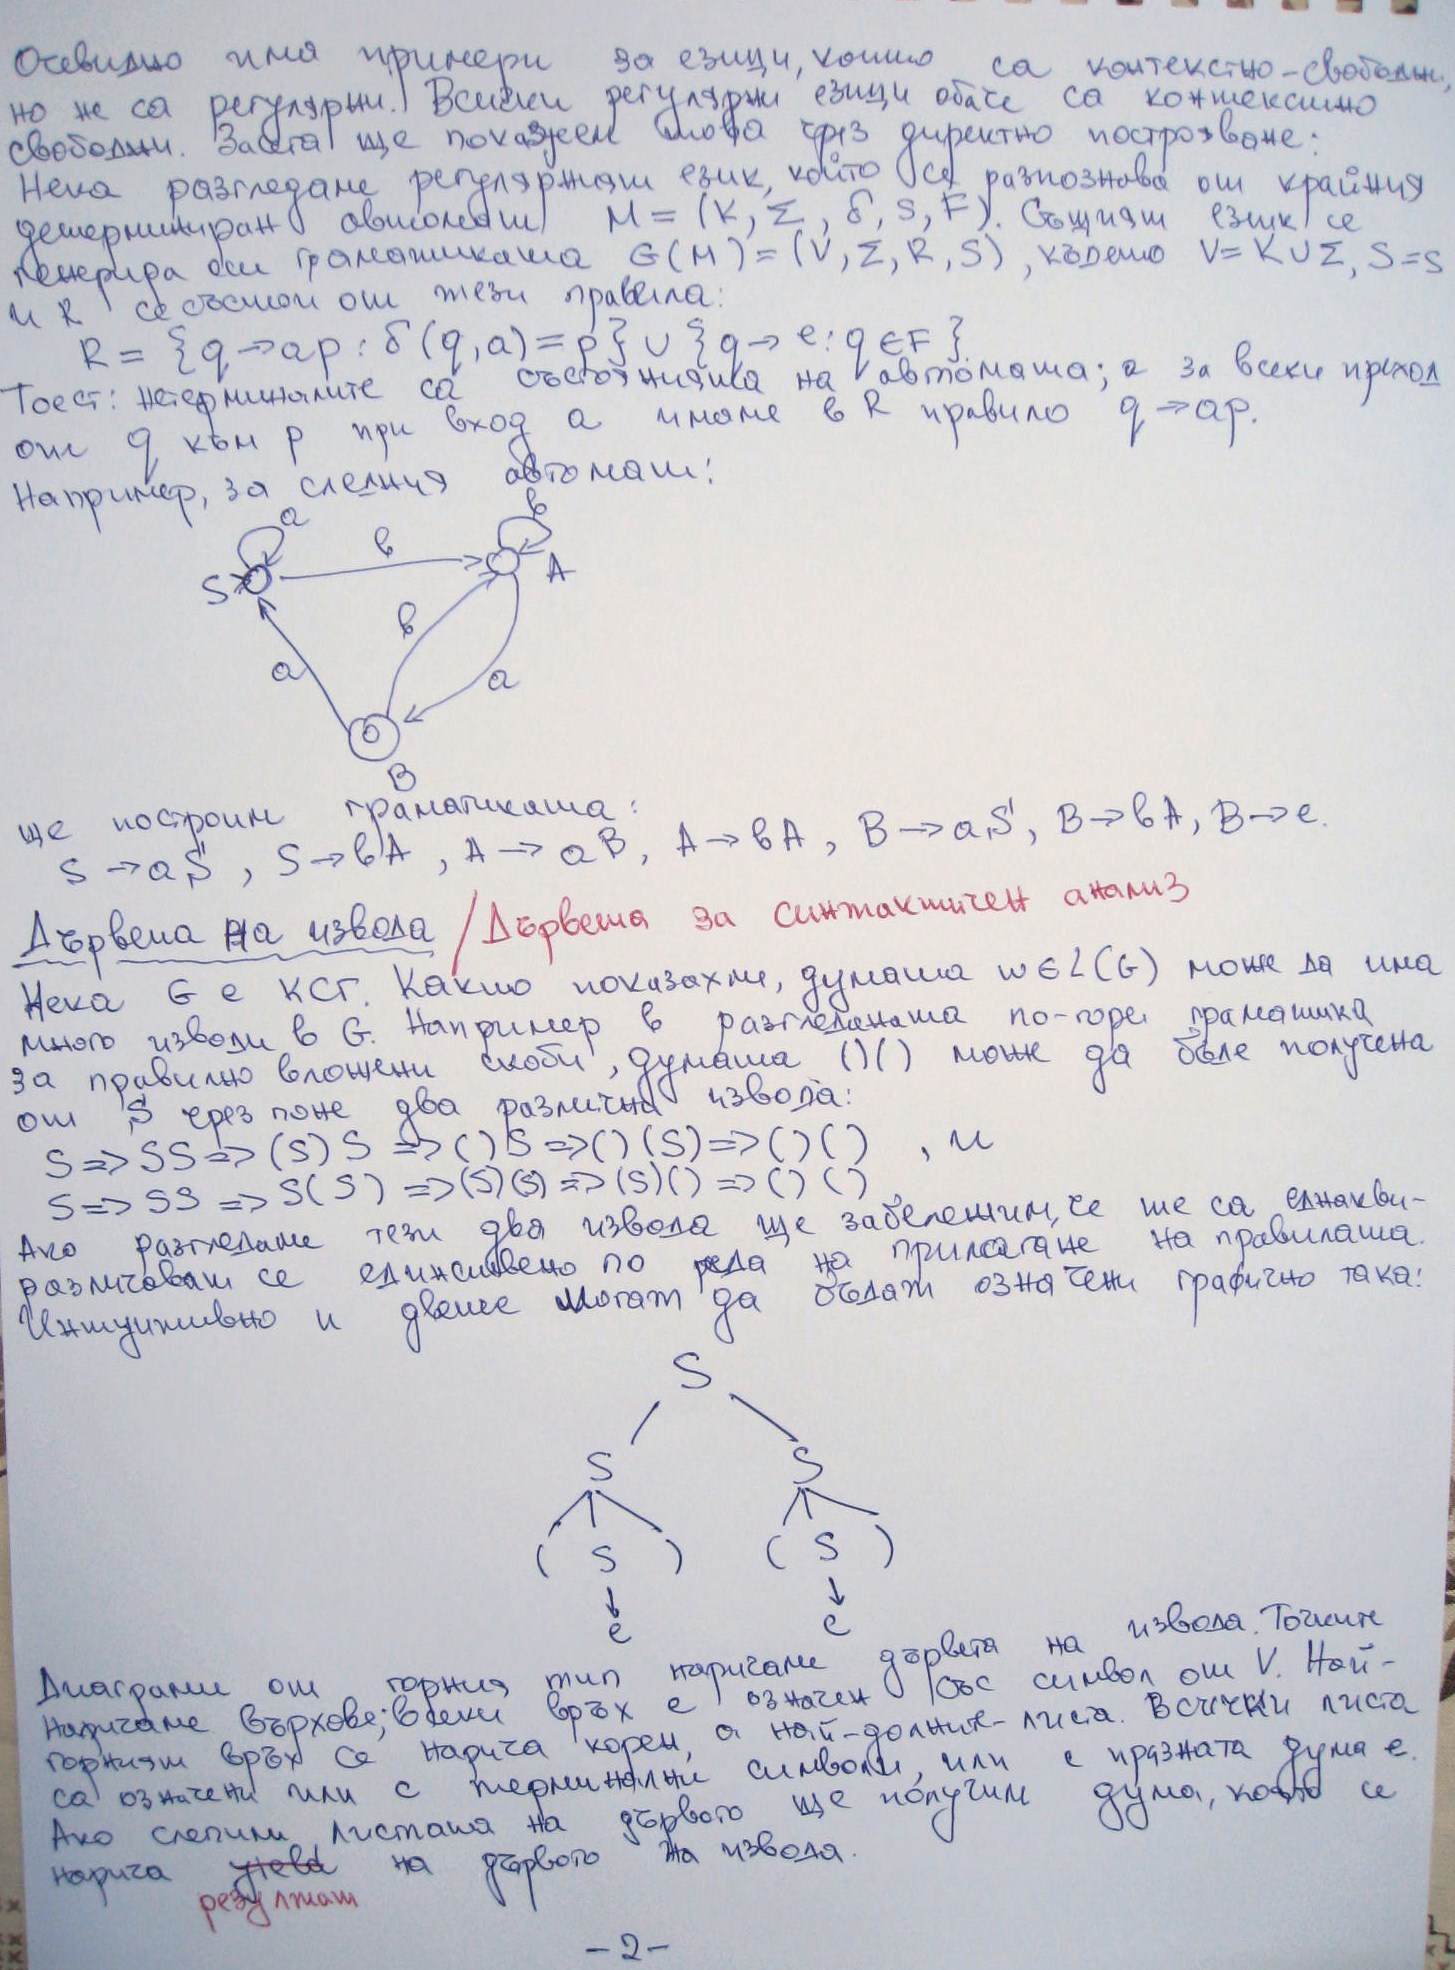 Очевидно има примери за езици, които са контекстно-свободни,
но не са регулярни. Всички регулярни езици обаче са контекстно
свободни. Засега ще покажем това чрез директно построяване:
Нека разгледаме регулярният език, който се разпознава от крайния
детерминиран автомат M = (K, Σ, δ, s, F). Същият език се
генерира от граматиката G(M) = (V, Σ, R, S), където V = K ∪ Σ, S = s
и R се състои от тези правила:
R = {q → ap : δ(q, a) = p} ∪ {q → e : q ∈ F}.
Тоест: нетерминалите са състоянията на автомата; а за всеки преход
от q към p при вход a имаме в R правило q → ap.
Например, за следния автомат:
a
b
b
S
A
b
a
a
B
ще построим граматиката:
S → aS, S → bA, A → aB, A → bA, B → aS, B → bA, B → e.
Дървета на извода / Дървета за синтактичен анализ
Нека G е КСГ. Както показахме, думата w ∈ L(G) може да има
много изводи в G. Например в разгледаната по-горе граматика
за правилно вложени скоби, думата ()() може да бъде получена
от S чрез поне два различни извода:
S => SS => (S)S => ()S => ()(S) => ()() , и
S => SS => S(S) => (S)(S) => (S)() => ()()
Ако разгледаме тези два извода ще забележим, че те са еднакви-
различават се единствено по реда на прилагане на правилата.
Интуитивно и двете могат да бъдат означени графично така:
S
S S
( S ) ( S )
e e
Диаграми от горния тип наричаме дървета на извода. Точките
наричаме върхове; всеки връх е означен със символ от V. Най-
горният връх се нарича корен, а най-долните - листа. Всички листа
са означени или с терминални символи, или с празната дума e.
Ако слепим листата на дървото ще получим дума, която се
нарича на дървото на извода.
резултат
-2-